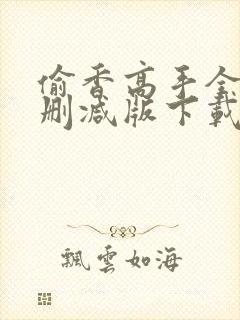 偷香高手全
删减版下載
飄雲如海